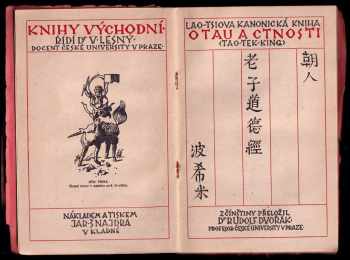 KNIHY VÝCHODNÍ
ŘÍDÍ Dr V. LESNÝ
DOCENT ČESKÉ UNIVERSITY V PRAZE
NÁKLADEM A TISKEM
JAR. ŠNAJDRA
V KLADNĚ
LAO-TSIOVA KANONICKÁ KNIHA
O TAU A CTNOSTI
(TAO-TEK-KING)
朝人
老子道德經
波希米
Z ČÍNŠTINY PŘELOŽIL
Dr RUDOLF DVOŘÁK
PROFESOR ČESKÉ UNIVERSITY V PRAZE